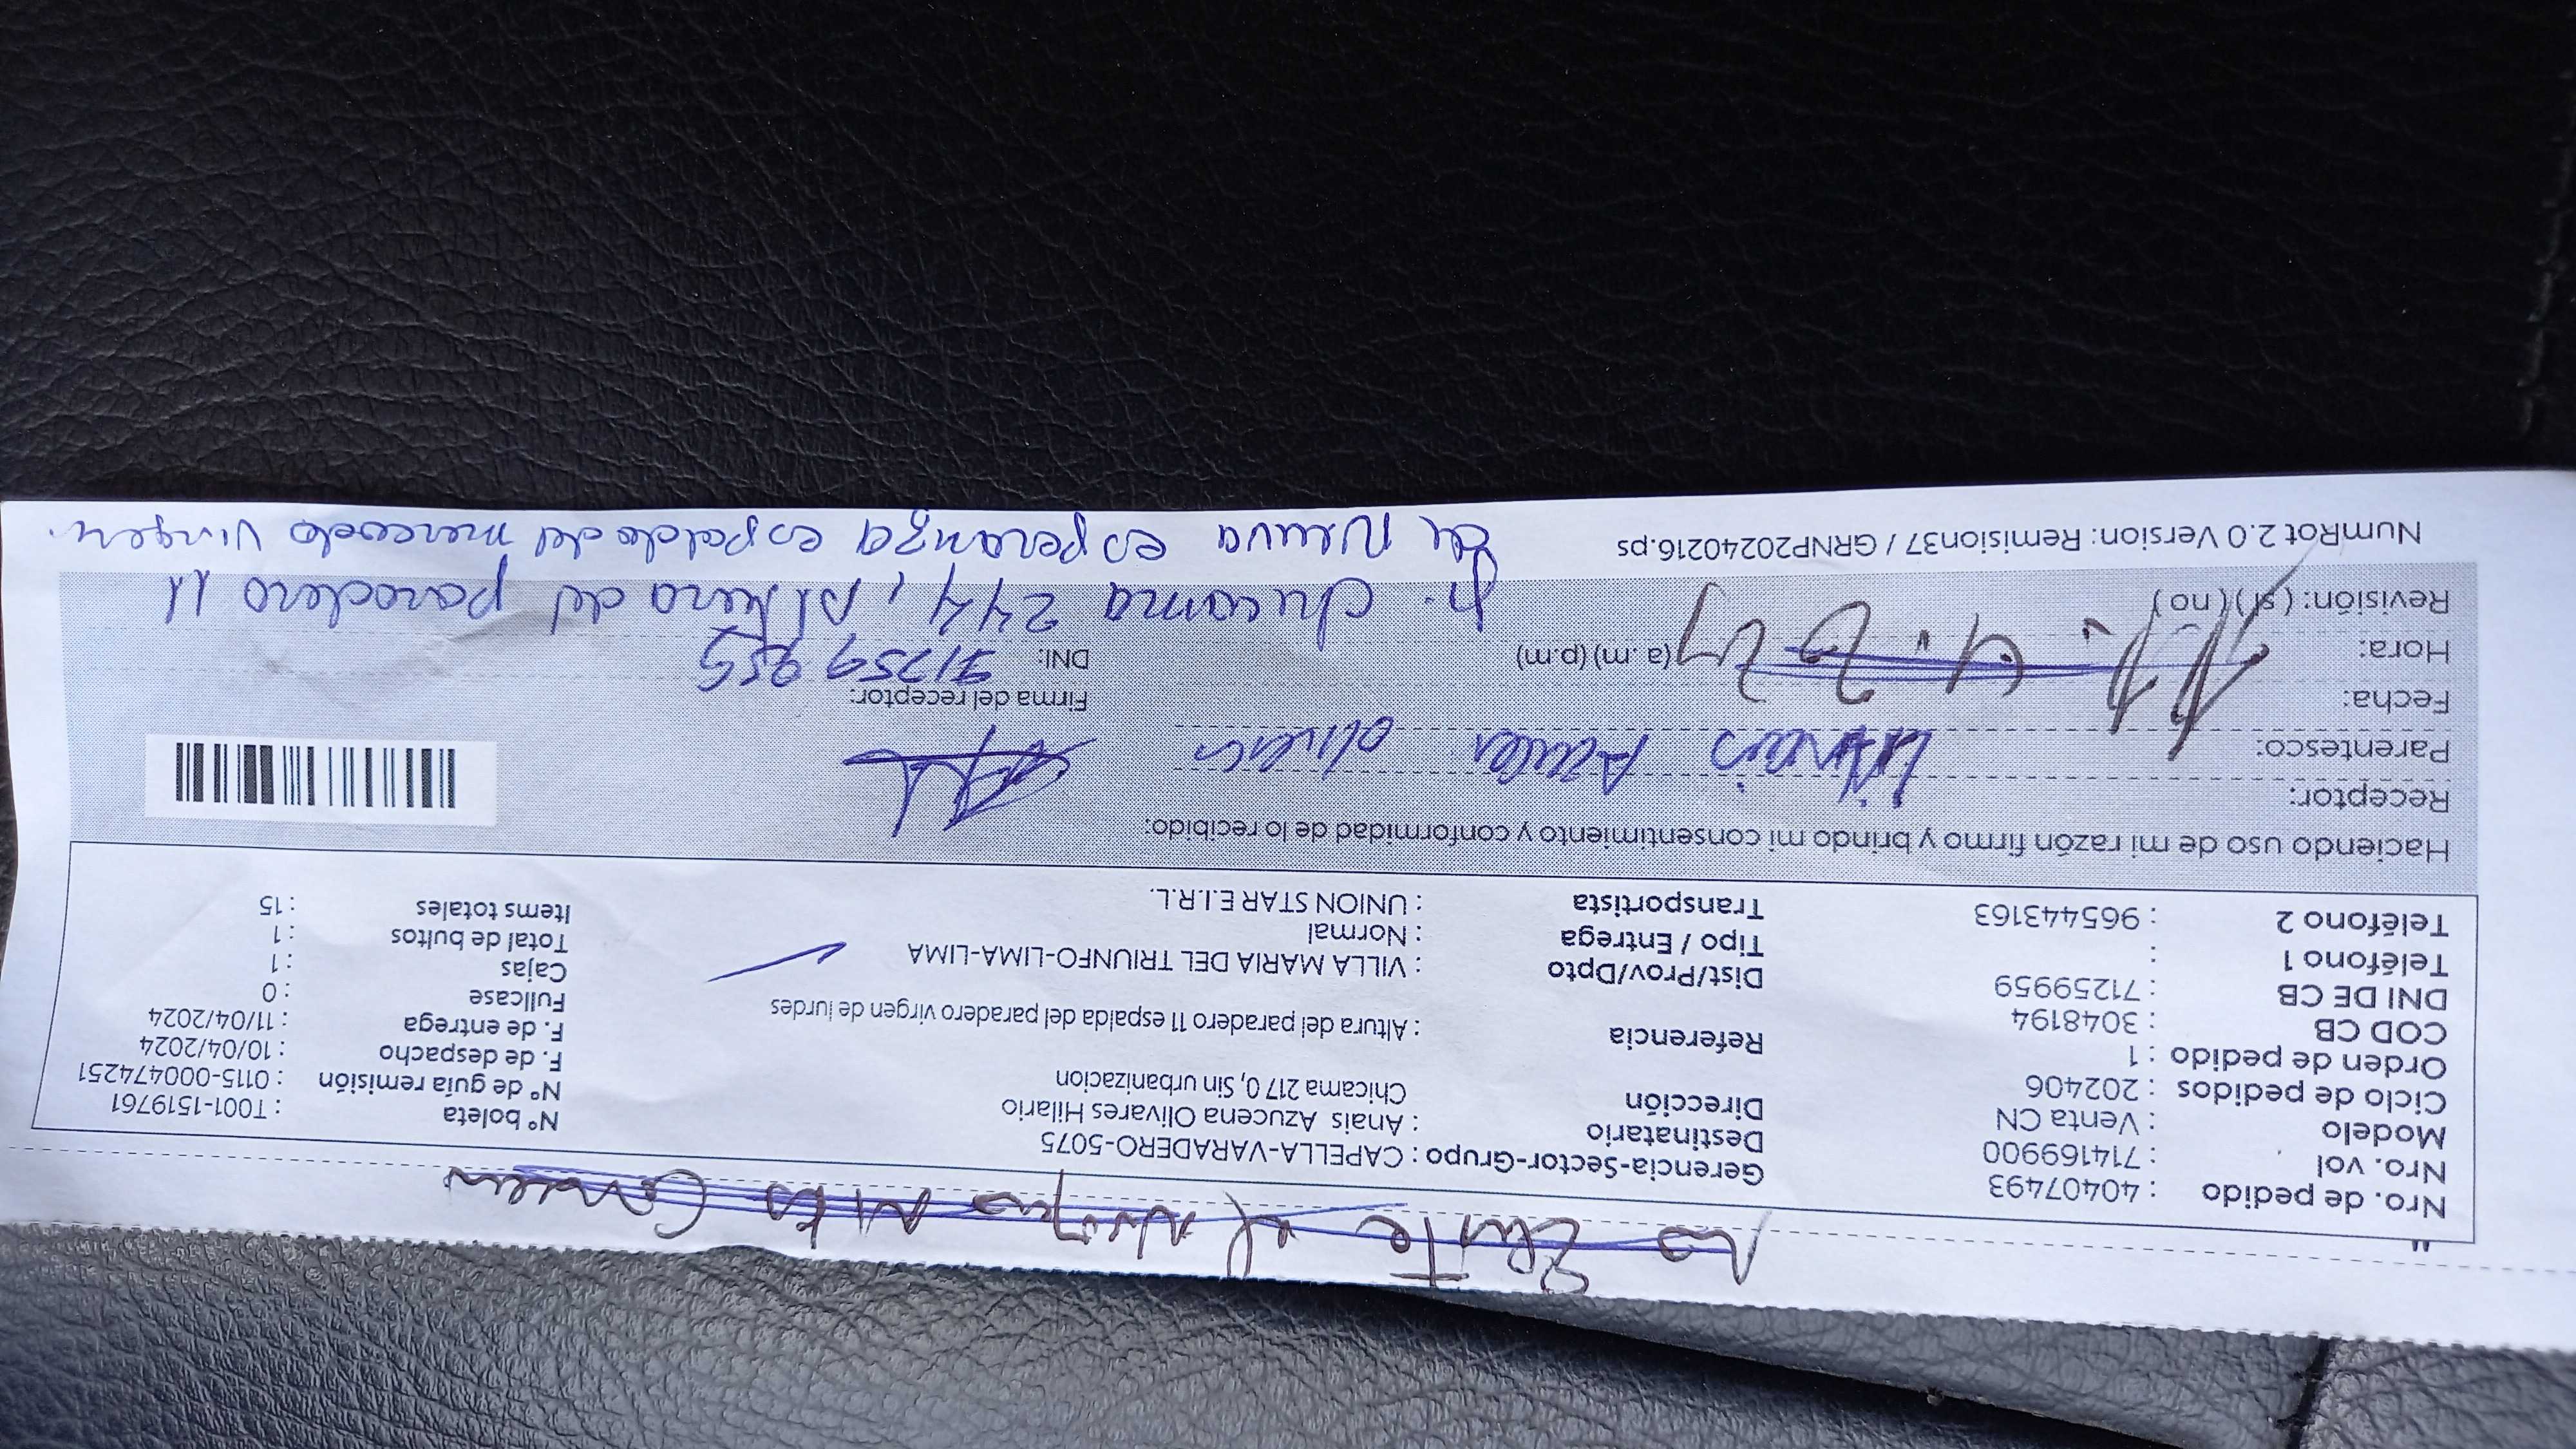 No Existe el
"
Nro. de pedido : 40407493
Nro. vol : 714169900
Modelo : Venta CN
Ciclo de pedidos : 202406
Orden de pedido : 1
COD CB : 3048194
DNI DE CB : 71259959
Teléfono 1 :
Teléfono 2 : 965443163
Gerencia-Sector-Grupo : CAPELLA-VARADERO-5075
Destinatario : Anais Azucena Olivares Hilario
Dirección Chicama 217 0, Sin urbanizacion
Referencia : Altura del paradero 11 espalda del paradero virgen de lurdes
Dist/Prov/Dpto : VILLA MARIA DEL TRIUNFO-LIMA-LIMA
Tipo / Entrega : Normal
Transportista : UNION STAR E.I.R.L.
N° boleta : T001-1519761
N° de guía remisión : 0115-000474251
F. de despacho : 10/04/2024
F. de entrega : 11/04/2024
Fullcase : 0
Cajas : 1
Total de bultos : 1
Items totales : 15
Haciendo uso de mi razón firmo y brindo mi consentimiento y conformidad de lo recibido:
Receptor:
Parentesco:
Fecha:
Hora: (a. m) (p.m)
Revisión: ( sí ) ( no )
Firma del receptor:
DNI:
chicama 244, Altura del paradero 11
de Nueva esperanza espalda del mercado Virgen.
NumRot 2.0 Version: Remision37 / GRNP20240216.ps